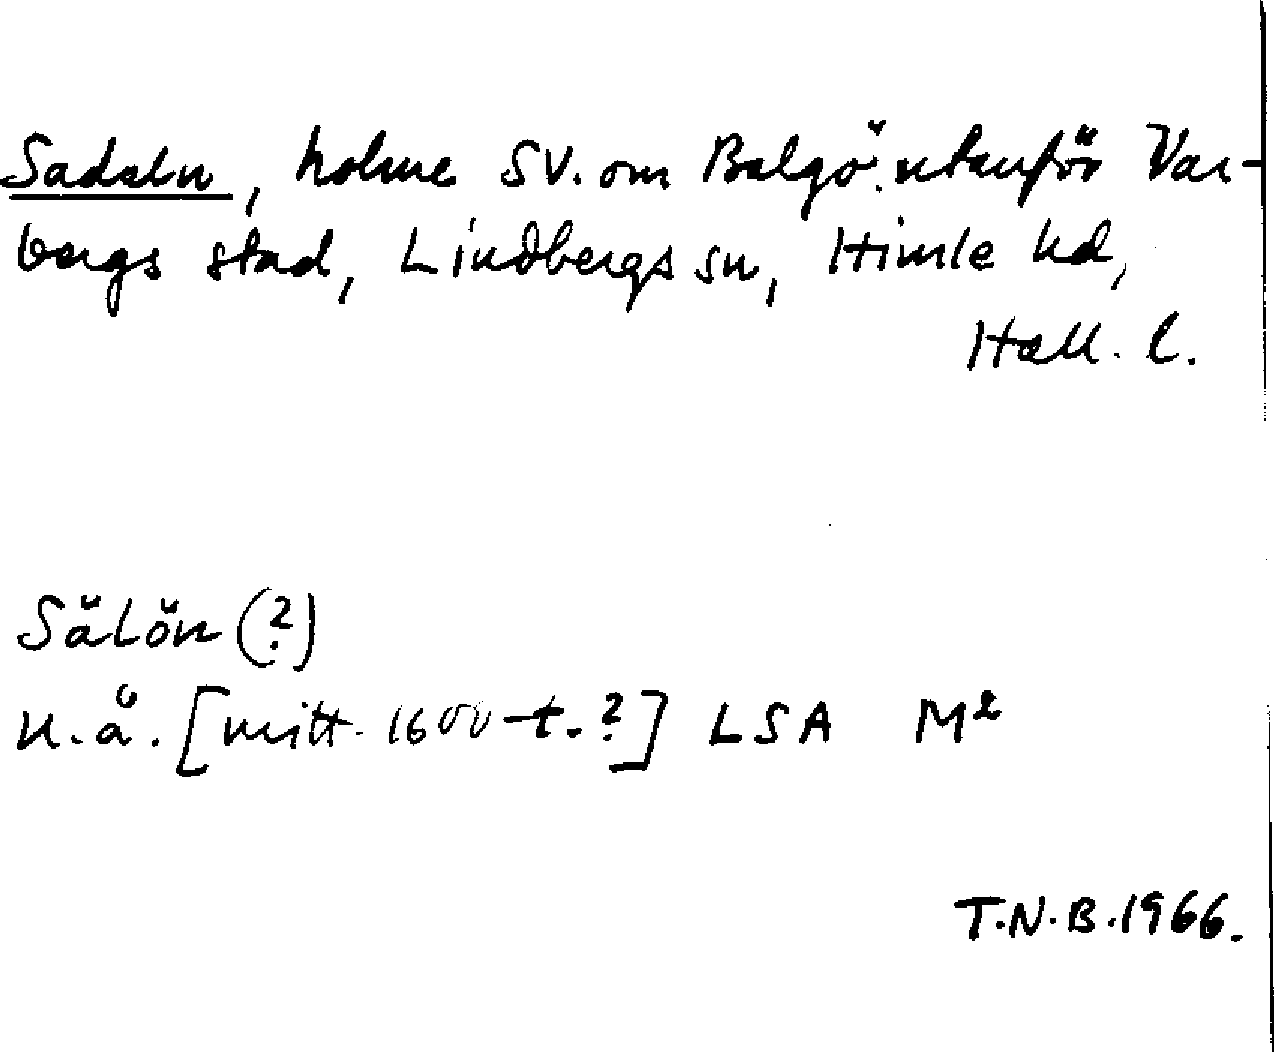 Sadeln, holme SV. om Balgö utanför Var-
bergs stad, Lindbergs sn, Himle hd,
Hall. l.
Sälön (?)
u.å. [mitt. 1600-t.?] LSA M²
T.N.B. 1966.